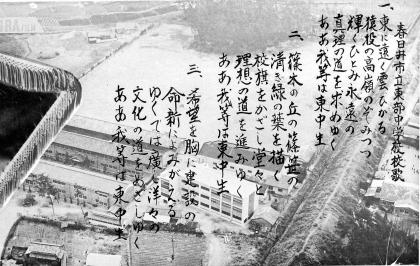 春日井市立東部中学校校歌
一、東に遠く雲ひかる
猿投の高嶺のぞみつつ
輝くひとみ永遠の
真理の道を求めゆく
ああ我等は東中生
二、篠木の丘の篠笹の
清き緑の栞を描く
校旗をかざし堂々と
理想の道を進みゆく
ああ我等は東中生
三、希望を胸に建設の
命新によみがえる
ゆくては廣し洋々の
文化の道をめざしゆく
ああ我等は東中生